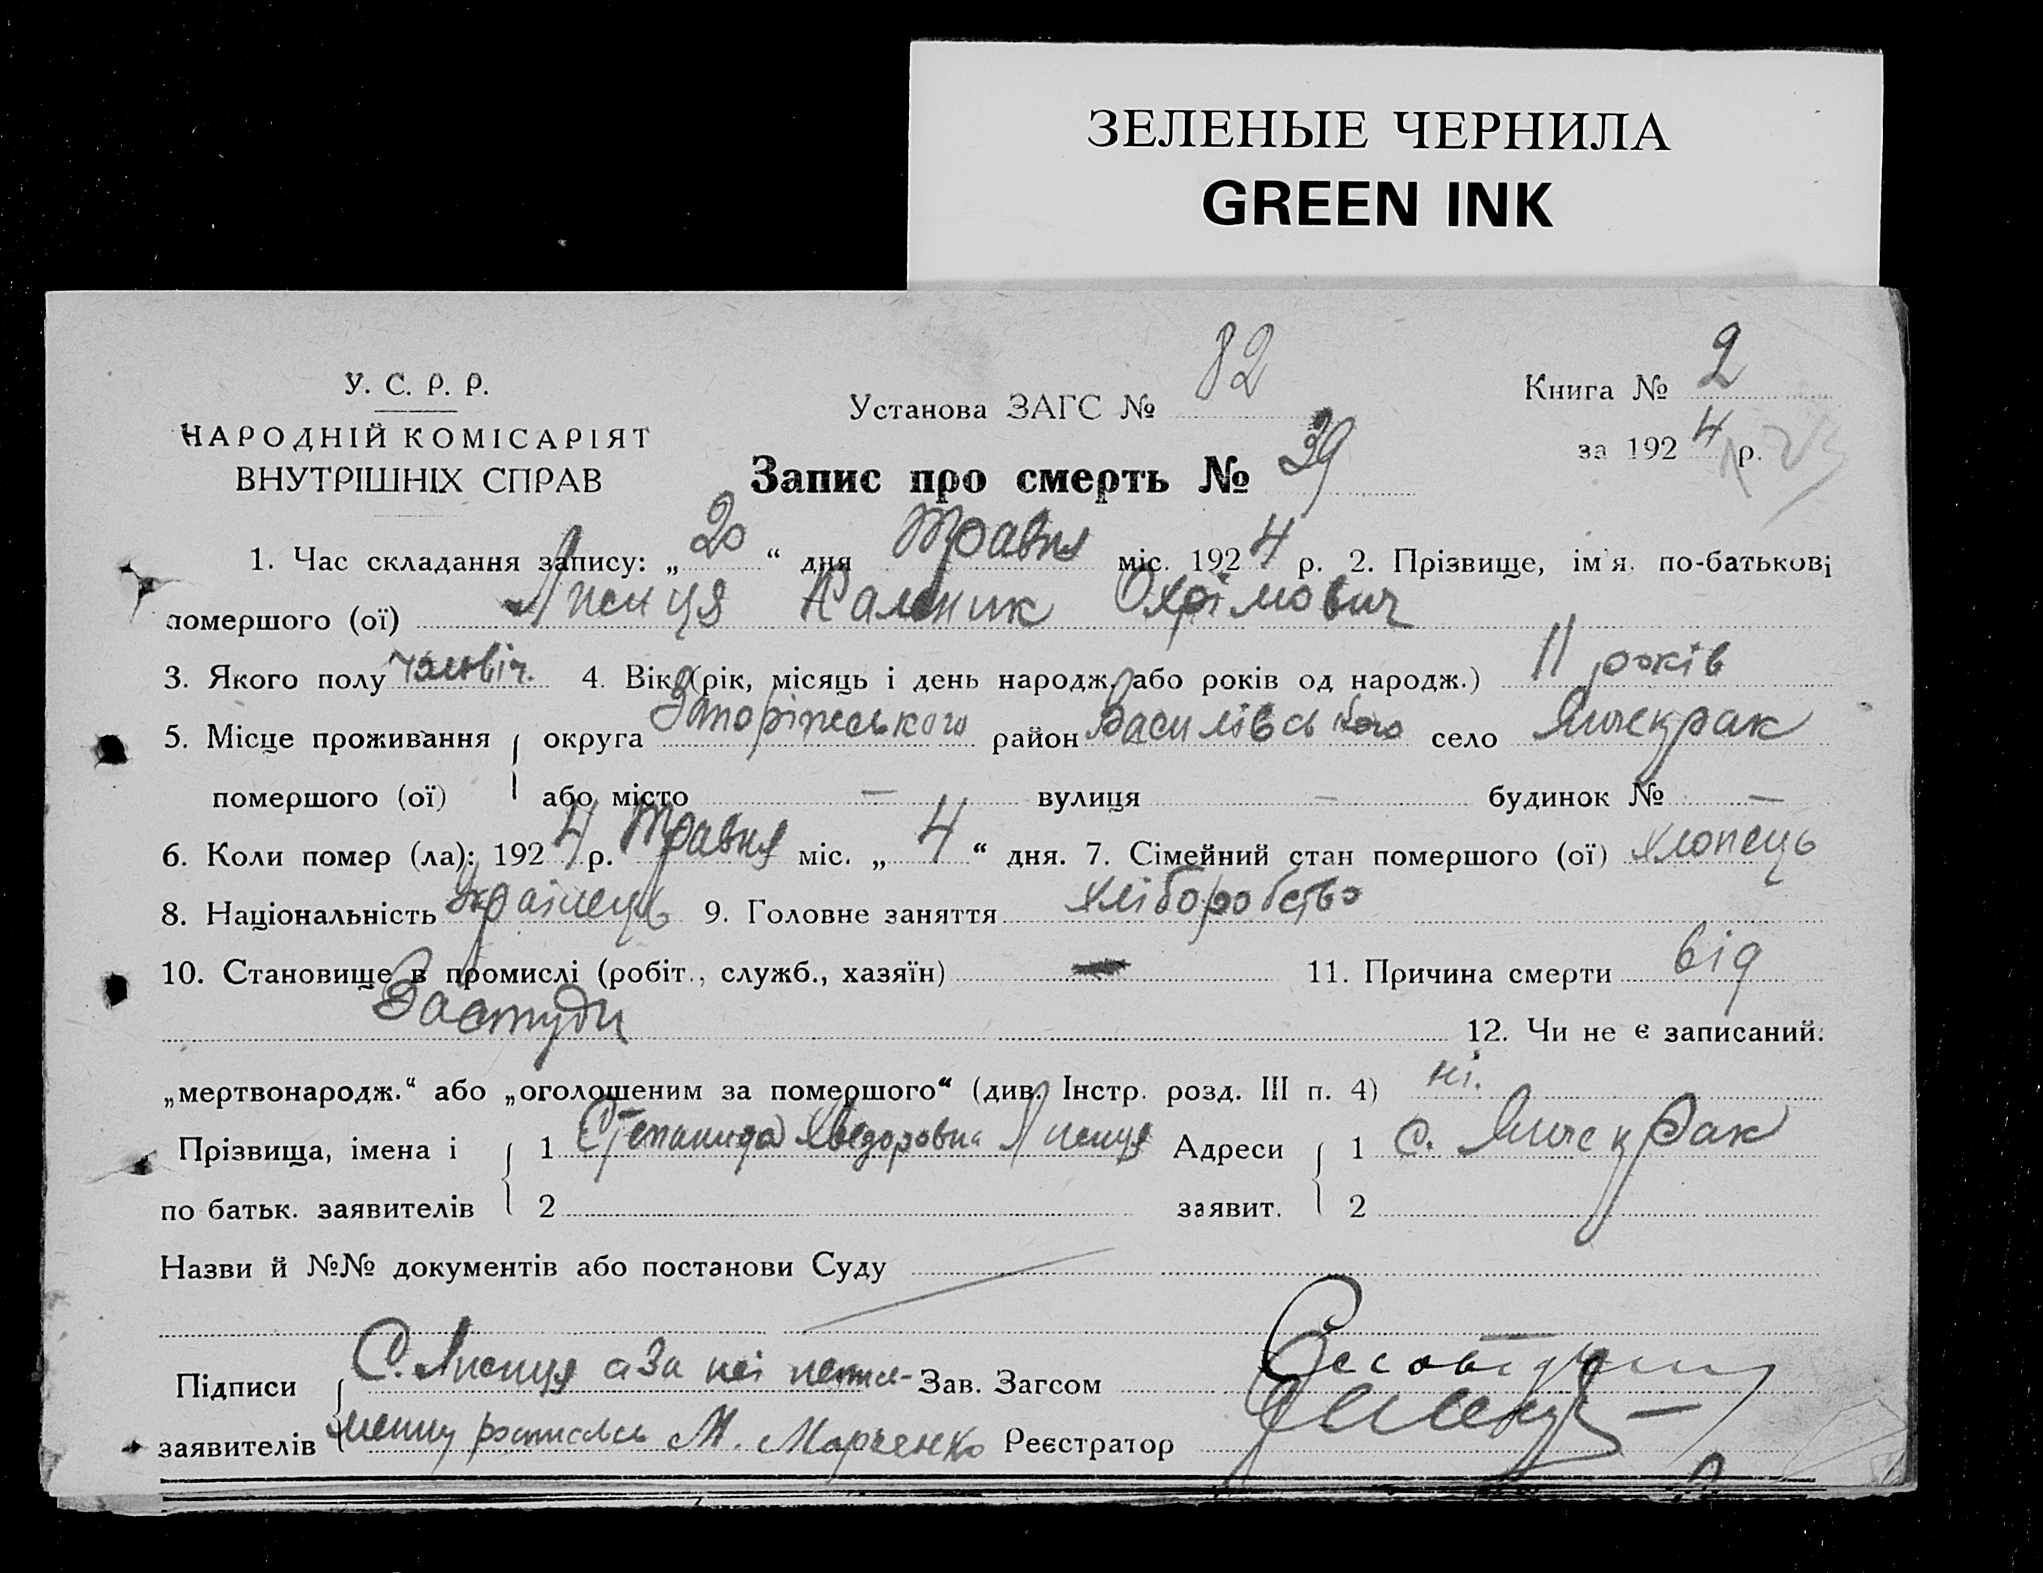 ЗЕЛЕНЫЕ ЧЕРНИЛА
GREEN INK
У. С. Р. Р.
НАРОДНІЙ КОМІСАРІЯТ
ВНУТРІШНІХ СПРАВ
Установа ЗАГС № 82
Книга № 2
за 1924 р.
Запис про смерть № 39
1. Час складання запису: „20“ дня Травня міс. 1924 р. 2. Прізвище, ім'я, по-батькові
помершого (ої) Лисиця Калиник Охрімович
3. Якого полу чоловіч. 4. Вік (рік, місяць і день народж. або років од народж.) 11 років
5. Місце проживання округа Запоріжського район Василівського село Янчекрак
помершого (ої) або місто — вулиця — будинок № —
6. Коли помер (ла): 1924 р. Травня міс. „4“ дня. 7. Сімейний стан помершого (ої) хлопець
8. Національність Українець 9. Головне заняття хліборобство
10. Становище в промислі (робіт., служб., хазяїн) — 11. Причина смерти від
Застуди
12. Чи не є записаний:
„мертвонародж.“ або „оголошеним за помершого“ (див. Інстр. розд. III п. 4) ні.
Прізвища, імена і 1 Степанида Хведоровна Лисиця Адреси 1 с. Янчекрак
по батьк. заявителів 2 заявит. 2
Назви й №№ документів або постанови Суду
Підписи С. Лисиця а за неі Зав. Загсом
заявителів росписавсь М. Марченко Реєстратор